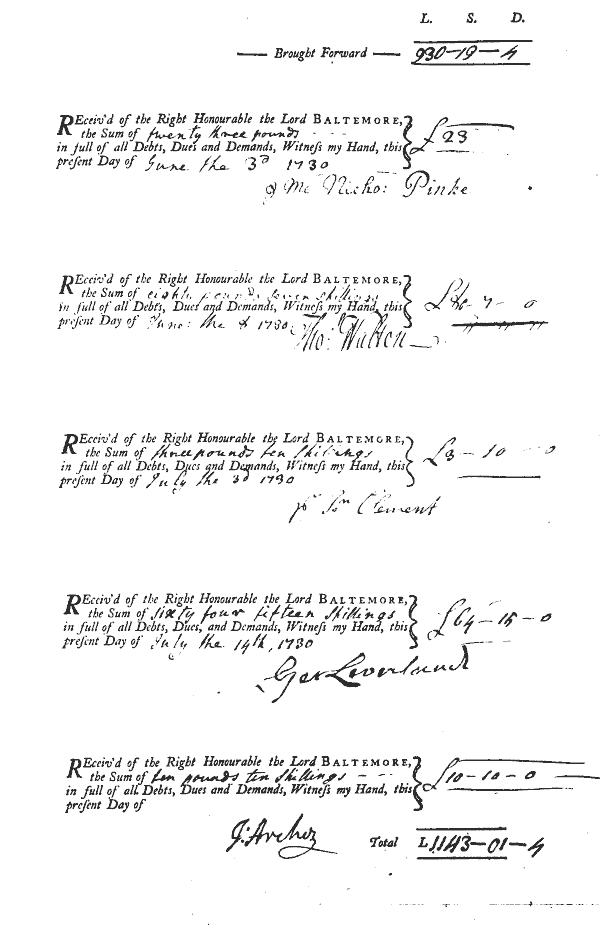 L. S. D.
Brought Forward 930-19-4
REceiv'd of the Right Honourable the Lord BALTEMORE,
the Sum of twenty three pounds - - -
£23
in full of all Debts, Dues and Demands, Witneſs my Hand, this
preſent Day of June the 3d 1730
Nicho: Pinke
REceiv'd of the Right Honourable the Lord BALTEMORE,
the Sum of pounds seven shillings
in full of all Debts, Dues and Demands, Witneſs my Hand, this
preſent Day of June: the 1730
Tho: Walton
REceiv'd of the Right Honourable the Lord BALTEMORE,
the Sum of three pounds ten shillings
£3-10-0
in full of all Debts, Dues and Demands, Witneſs my Hand, this
preſent Day of July the 3d 1730
Clement
REceiv'd of the Right Honourable the Lord BALTEMORE,
the Sum of sixty four fifteen shillings
£64-15-0
in full of all Debts, Dues, and Demands, Witneſs my Hand, this
preſent Day of July the 14th, 1730
Geo
REceiv'd of the Right Honourable the Lord BALTEMORE,
the Sum of ten pounds ten shillings - -
£10-10-0
in full of all Debts, Dues and Demands, Witneſs my Hand, this
preſent Day of
J: Archer
Total L 1143-01-4